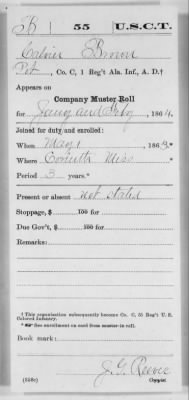 B | 55 | U.S.C.T.
Calvin Brown
Pvt, Co. C, 1 Reg't Ala. Inf., A. D.†
Appears on
Company Muster Roll
for Jany and Feby, 1864.
Joined for duty and enrolled:
When May 1, 1863.*
Where Corinth Miss
Period 3 years.*
Present or absent not stated
Stoppage, $ 100 for
Due Gov't, $ 100 for
Remarks:
† This organization subsequently became Co. C, 55 Reg't U. S. Colored Infantry.
* See enrollment on card from muster-in roll.
Book mark:
J. G. Reeve
(358c) Copyist.